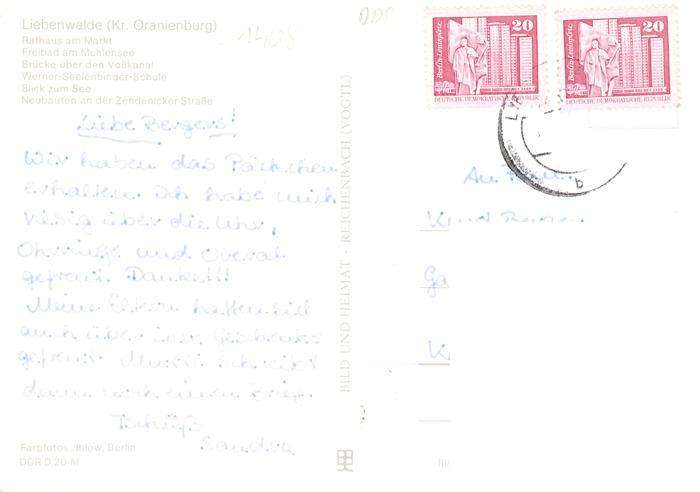 Liebenwalde (Kr. Oranienburg)
Rathaus am Markt
Freibad am Mühlensee
Brücke über den Voßkanal
Werner-Seelenbinder-Schule
Blick zum See
Neubauten an der Zehdenicker Straße
Liebe Bergers!
Wir haben das Päckchen
erhalten. Ich habe mich
riesig über die Uhr,
Ohrringe und Overal
gefreut. Danke!!!
Meine Eltern hatten sich
auch über ihre Geschenke
gefreut. Mutti schreibt
dann noch einen Brief.
Tschüß
Sandra
Farbfotos: Ihlow, Berlin
DDR 0,20 M
BILD UND HEIMAT · REICHENBACH (VOGTL)
DDR
1408
Berlin-Leninplatz
20
DEUTSCHE DEMOKRATISCHE REPUBLIK
Berlin-Leninplatz
20
DEUTSCHE DEMOKRATISCHE REPUBLIK
b
An
Ga
K